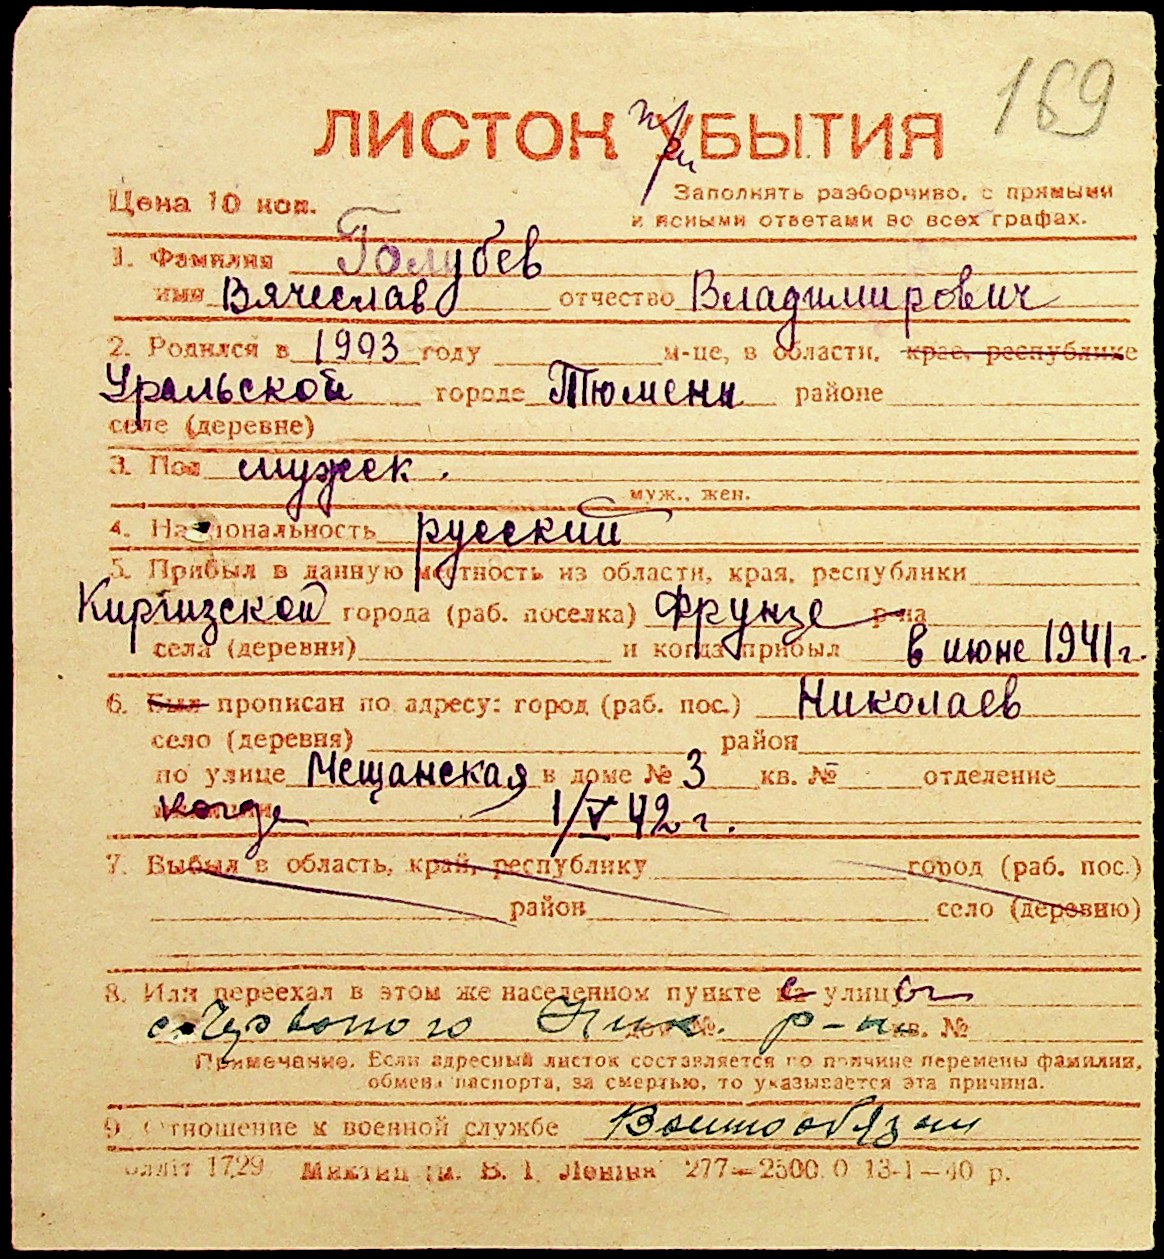 169
ЛИСТОК при УБЫТИЯ
Цена 10 коп.
Заполнять разборчиво, с прямыми
и ясными ответами во всех графах.
1. Фамилия Голубев
имя Вячеслав отчество Владимирович
2. Родился в 1903 году м-це, в области, крае, республике
Уральской городе Тюмени районе
селе (деревне)
3. Пол мужск.
муж., жен.
4. Национальность русский
5. Прибыл в данную местность из области, края, республики
Киргизской города (раб. поселка) Фрунзе р-на
села (деревни) и когда прибыл в июне 1941 г.
6. Был прописан по адресу: город (раб. пос.) Николаев
село (деревня) район
по улице Мещанская в доме № 3 кв. № отделение
когда 1/V 42 г.
7. Выбыл в область, край, республику город (раб. пос.)
район село (деревню)
8. Или переехал в этом же населенном пункте с улицы
с. Червоного Ник. р-н дом № кв. №
Примечание. Если адресный листок составляется по причине перемены фамилии,
обмена паспорта, за смертью, то указывается эта причина.
9. Отношение к военной службе Военнообязан
1729 ім. В. І. Леніна 277—2500.0 13-1—40 р.